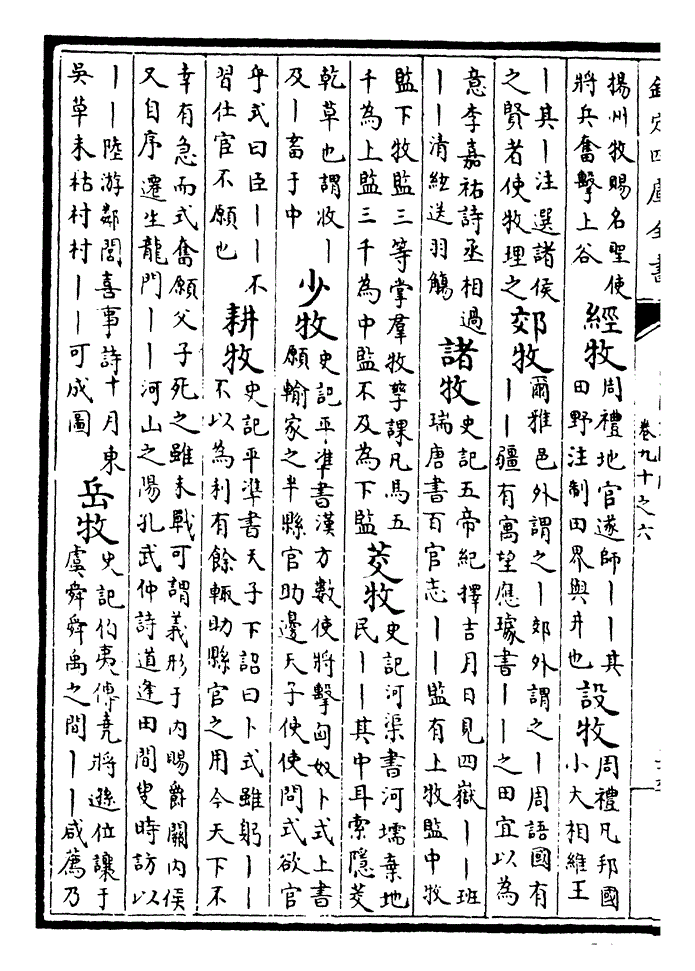 欽定四庫全書
卷九十之六
揚州牧賜名聖使
將兵奮擊上谷
經牧
周禮地官遂師丨丨其
田野注制田界與井也
設牧
周禮凡邦國
小大相維王
丨其丨注選諸侯
之賢者使牧理之
郊牧
爾雅邑外謂之丨郊外謂之丨周語國有
丨丨疆有寓望應璩書丨丨之田宜以為
意李嘉祐詩丞相過
丨丨清絃送羽觴
諸牧
史記五帝紀擇吉月日見四嶽丨丨班
瑞唐書百官志丨丨監有上牧監中牧
監下牧監三等掌羣牧孳課凡馬五
千為上監三千為中監不及為下監
茭牧
史記河渠書河壖棄地
民丨丨其中耳索隱茭
乾草也謂收丨
及丨畜于中
少牧
史記平準書漢方數使將擊匈奴卜式上書
願輸家之半縣官助邊天子使使問式欲官
乎式曰臣丨丨不
習仕宦不願也
耕牧
史記平準書天子下詔曰卜式雖躬丨丨
不以為利有餘輒助縣官之用今天下不
幸有急而式奮願父子死之雖未戰可謂義形于內賜爵關內侯
又自序遷生龍門丨丨河山之陽孔武仲詩道逢田間叟時訪以
丨丨陸游鄰閭喜事詩十月東
吳草未枯村村丨丨可成圖
岳牧
史記伯夷傳堯將遜位讓于
虞舜舜禹之間丨丨咸薦乃